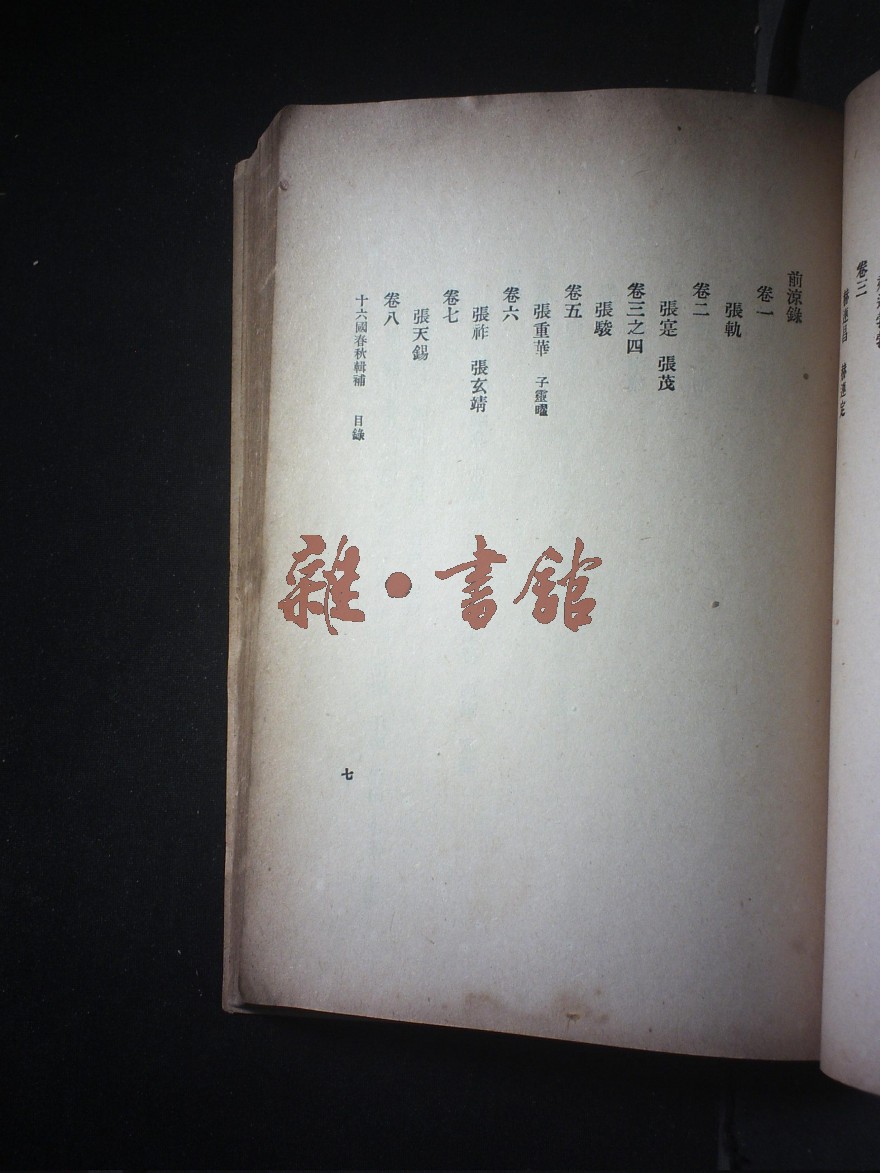 前涼錄
卷一
張軌
卷二
張寔　張茂
卷三之四
張駿
卷五
張重華　子靈曜
卷六
張祚　張玄靖
卷七
張天錫
卷八
十六國春秋輯補　目錄
七
雜·書館
卷三